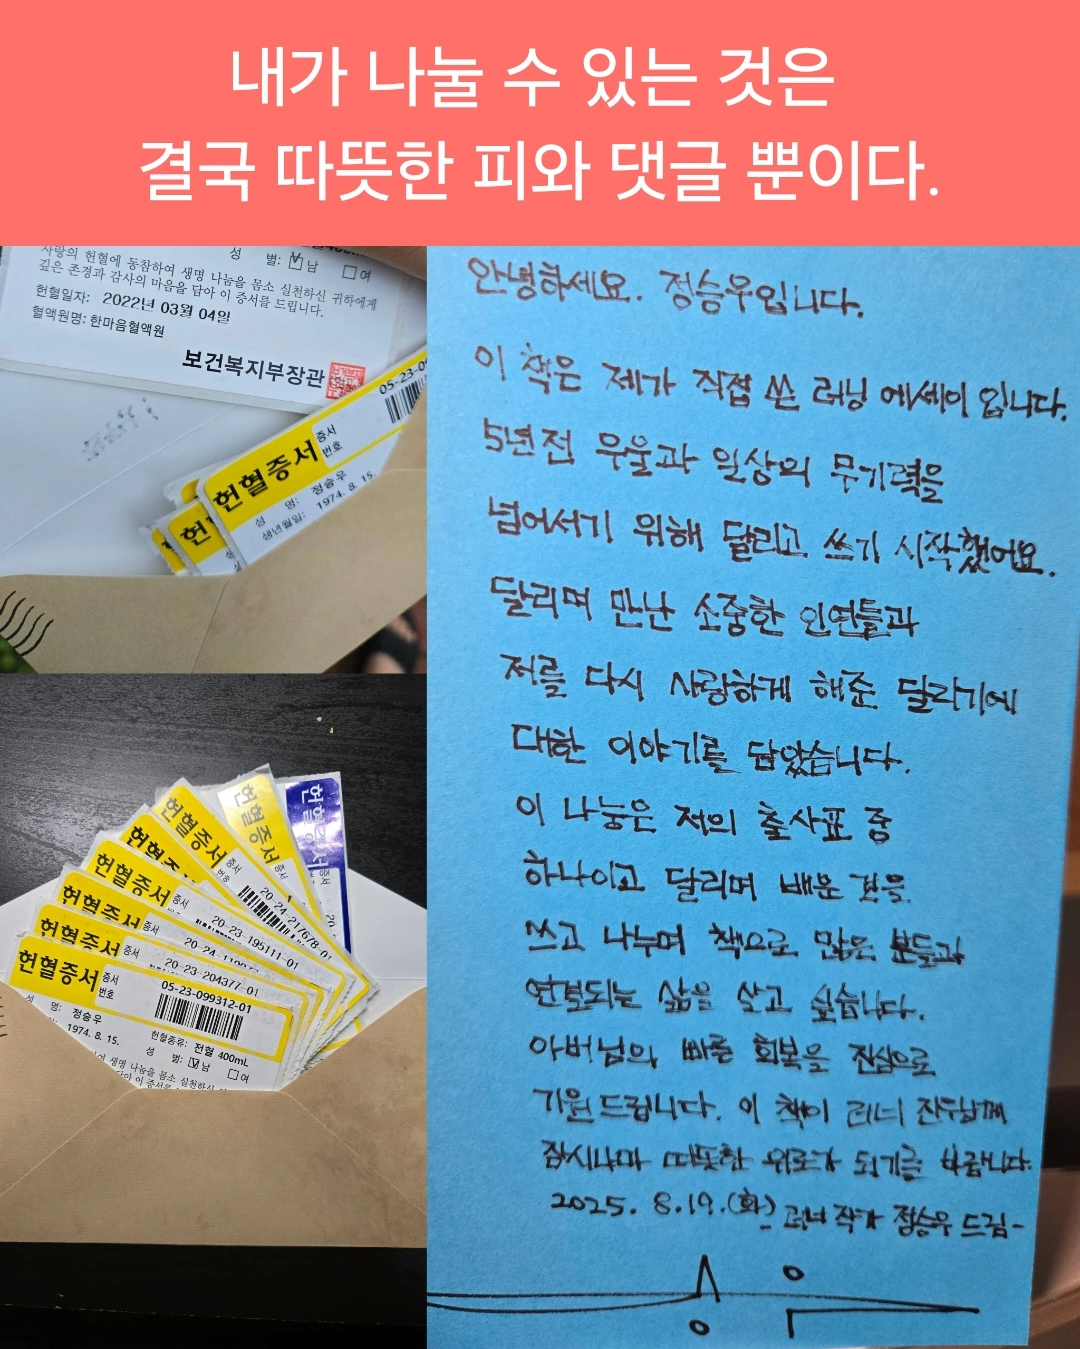 내가 나눌 수 있는 것은
결국 따뜻한 피와 댓글 뿐이다.
성 별: 남 여
사랑의 헌혈에 동참하여 생명 나눔을 몸소 실천하신 귀하에게
깊은 존경과 감사의 마음을 담아 이 증서를 드립니다.
헌혈일자: 2022년 03월 04일
혈액원명: 한마음혈액원
보건복지부장관
05-23-0
헌혈증서 증서
번호
성 명: 정승우
생년월일: 1974. 8. 15.
헌혈증서
헌혈증서 증서
헌혈증서 증서 번호 20-24-217678-01
헌혈증서
헌혈증서 증서 20-23-195111-01
헌혈증서 증서 20-24-
헌혈증서 증서 20-23-204377-01
헌혈증서 증서
번호 05-23-099312-01
성 명: 정승우
1974. 8. 15. 헌혈종류: 전혈 400mL
성 별: 남 여
여 생명 나눔을 몸소 실천하신
담아 이 증서를
안녕하세요. 정승우입니다.
이 책은 제가 직접 쓴 러닝 에세이 입니다.
5년전 우울과 일상의 무기력을
넘어서기 위해 달리고 쓰기 시작했어요.
달리며 만난 소중한 인연들과
저를 다시 사랑하게 해준 달리기에
대한 이야기를 담았습니다.
이 나눔은 저의 출사표 중
하나이고 달리며 배운 것을
쓰고 나누며 책으로 많은 분들과
연결되는 삶을 살고 싶습니다.
아버님의 빠른 회복을 진심으로
기원드립니다. 이 책이 러너 진두님께
잠시나마 따뜻한 위로가 되기를 바랍니다.
2025. 8.19.(화) - 러너 작가 정승우 드림-